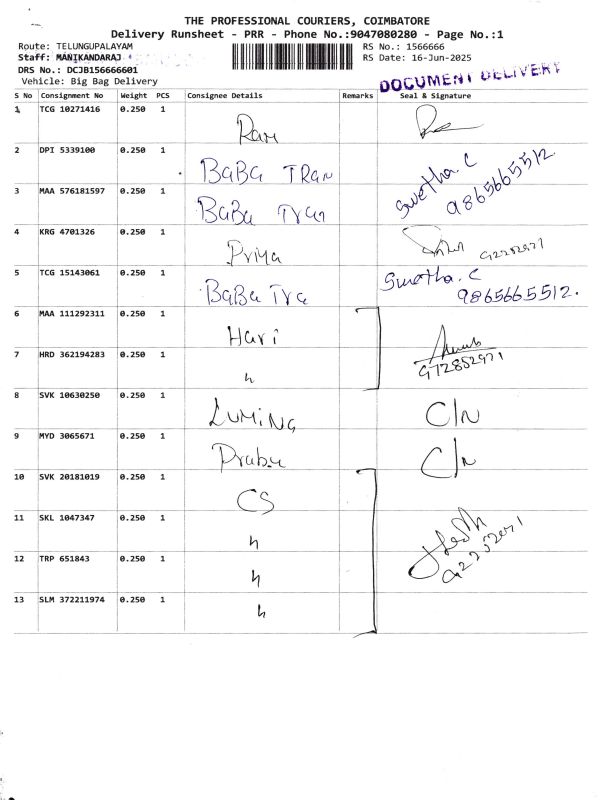 THE PROFESSIONAL COURIERS, COIMBATORE
Delivery Runsheet - PRR - Phone No.:9047080280 - Page No.:1
Route: TELUNGUPALAYAM RS No.: 1566666
Staff: MANIKANDARAJ RS Date: 16-Jun-2025
DRS No.: DCJB156666601
Vehicle: Big Bag Delivery
DOCUMENT DELIVERY
S No Consignment No Weight PCS Consignee Details Remarks Seal & Signature
1 TCG 10271416 0.250 1
Ravi
2 DPI 5339100 0.250 1
BaBa TRan Swetha. C
9865665512
3 MAA 576181597 0.250 1
BaBa Tran
4 KRG 4701326 0.250 1
Priya
5 TCG 15143061 0.250 1 Swetha. C
BaBa Tra 9865665512.
6 MAA 111292311 0.250 1
Hari
7 HRD 362194283 0.250 1
"
8 SVK 10630250 0.250 1
Luming C/N
9 MYD 3065671 0.250 1
Prabu C/N
10 SVK 20181019 0.250 1
CS
11 SKL 1047347 0.250 1
"
12 TRP 651843 0.250 1
"
13 SLM 372211974 0.250 1
"